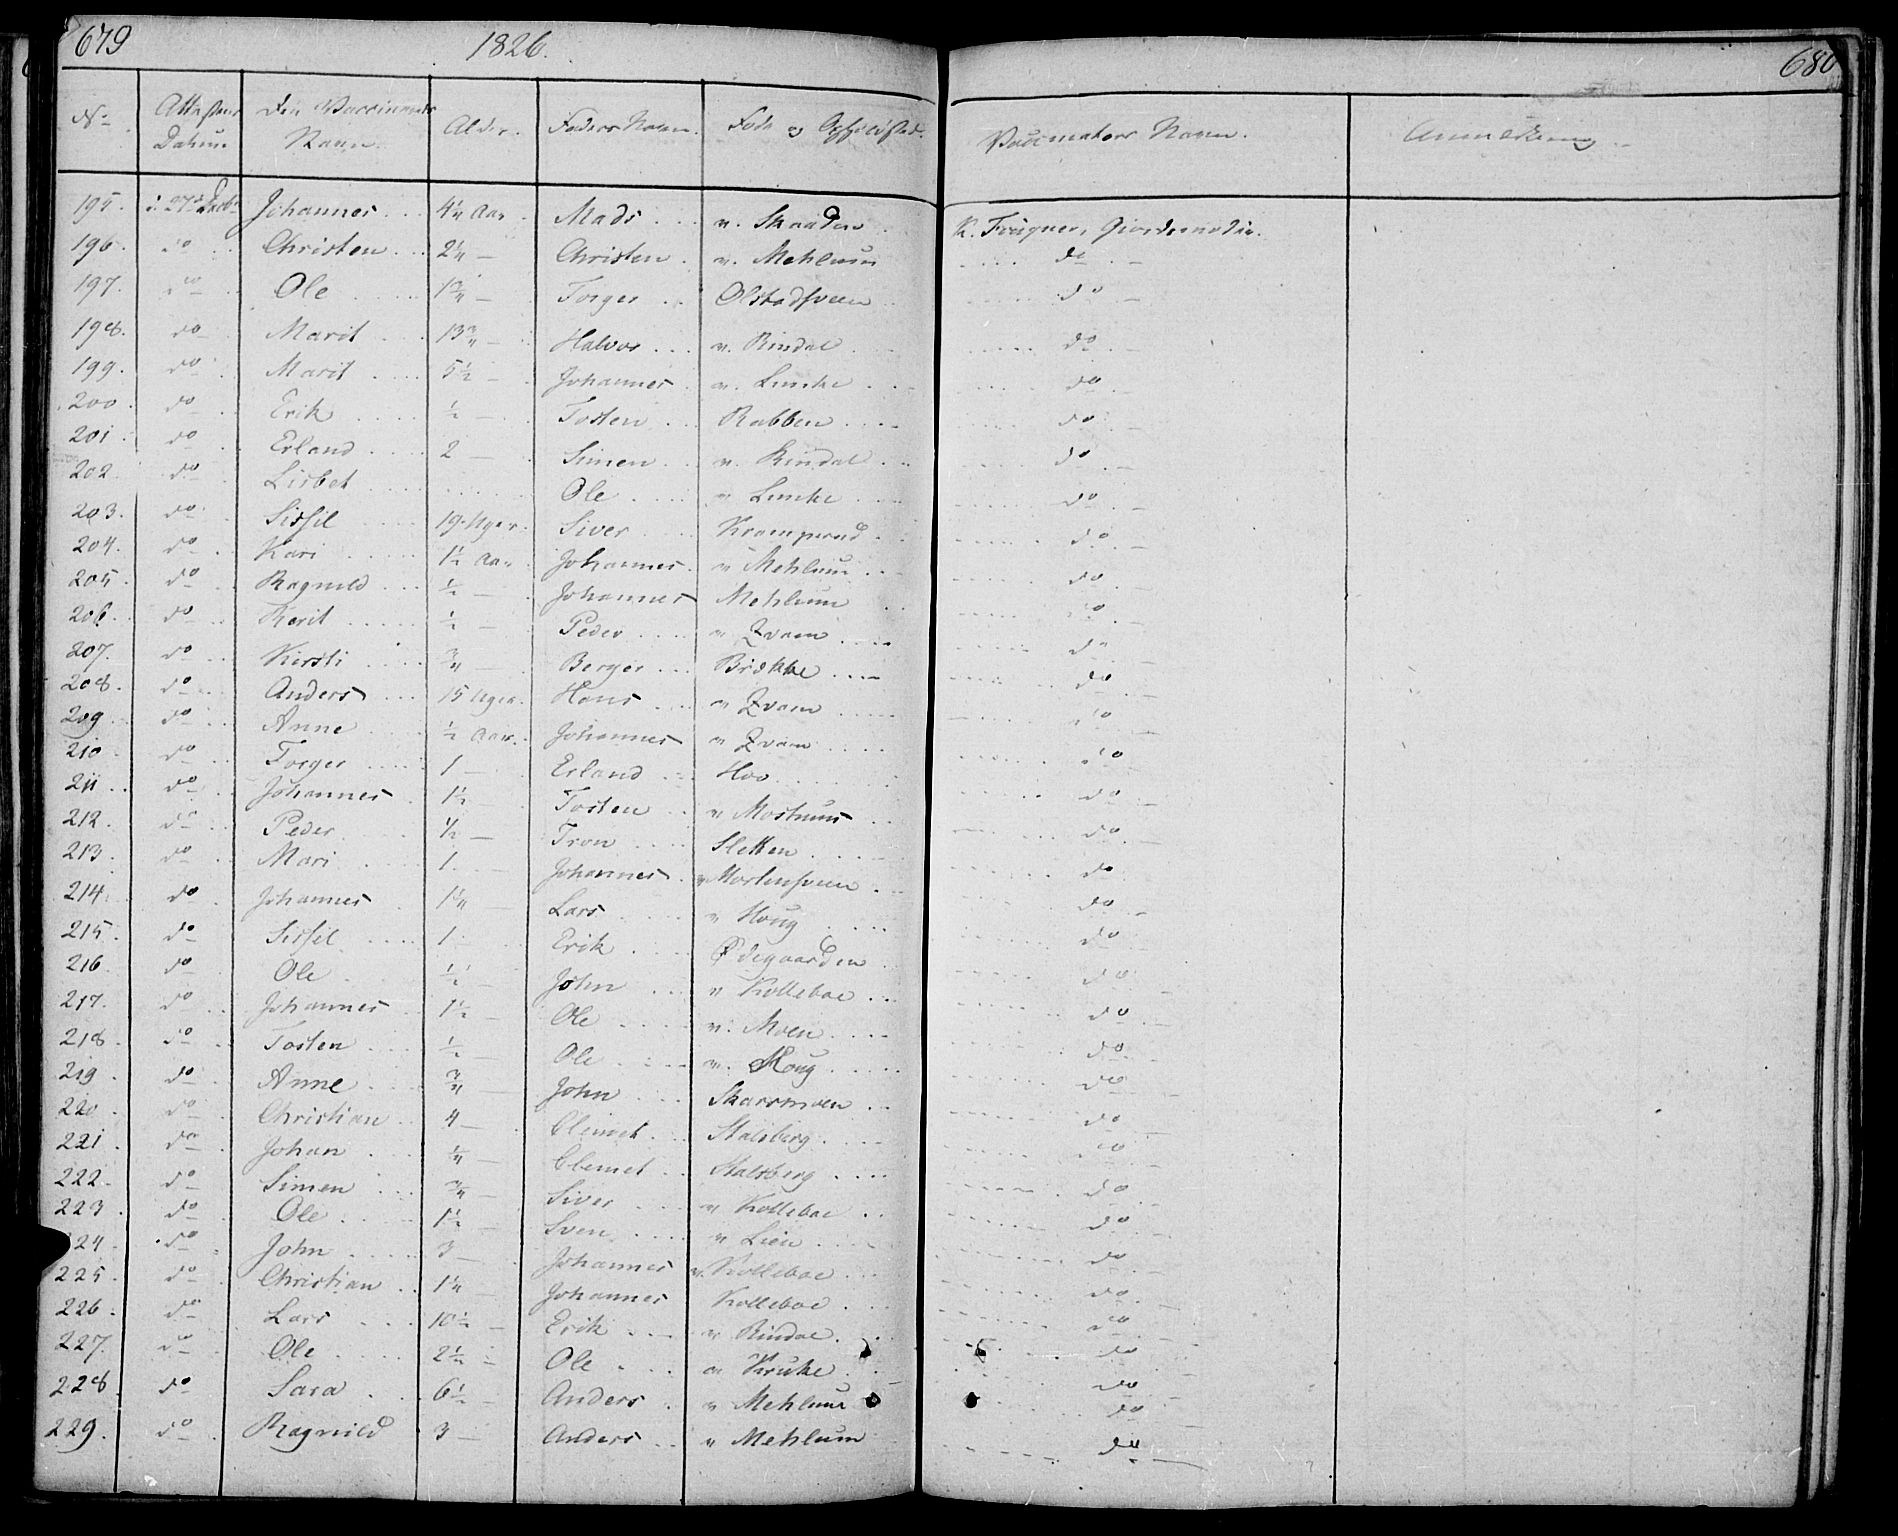 679 1826. 680
No Attestens Datum Den Vaccineredes Navn Alder. Faders Navn. Føde og Opholdssted. Vaccinators Navn. Anmerkning
195. d. 27de Decbr Johannes 4 1/4 Aar Mads v. Skaaden R. Frugner, Giordemoder.
196. do Christen 2 1/4 Christen v. Mehlum do
197. do Ole 1 3/4 Torger Olstadsveen do
198. do Marit 13 3/4 Halvor v. Rindal do
199. do Marit 5 1/2 Johannes v. Lunke do
200 do Erik 1/2 Tosten Rabben do
201 do Erland 2 Simen v. Rindal do
202. do Lisbet Ole v Lunke do
203. do Sissil 19 Uger Siver Kramperud do
204. do Kari 1 1/2 Aar Johannes v Mehlum do
205 do Ragnild 1/2 Johannes Mehlum do
206. do Berit 1/2 Peder v Qvam do
207. do Kirsti 3/4 Berger Brække do
208. do Anders 15 Uger Hans v Qvam do
209 do Anne 1/2 Aar. Johannes v Qvam do
210 do Torger 1 Erland Hov do
211 do Johannes 1 1/2 Tosten v Mostuus do
212. do Peder 1/2 Tron Sletten do
213. do Mari 1. Johannes v Mortensveen do
214. do Johannes 1 1/4 Lars v Houg do
215. do Sissil 1 Erik Ødegaarden do
216. do Ole 1/2 John v Kolleboe do
217. do Johannes 1 1/2 Ole v. Moen do
218. do Tosten 1/2 Ole v. Houg do
219. do Anne 3/4 John Skarsmoen do
220 do Christian 4 Clemet Stalsberg do
221 do Johan 1/4 Clemet Stalsberg do
222. do Simen 3/4 Siver v Kolleboe do
223. do Ole 1 1/2 Sven v Lien do
224. do John 3 Johannes v. Kolleboe do
225. do Christian 1 1/4 Johannes Kolleboe do
226. do Lars 10 1/2 Erik v Rindal do
227. do Ole 2 1/2 Ole v Kruke do
228 do Sara 6 1/2 Anders v Mehlum do
229. do Ragnild 3 Anders v Mehlum do